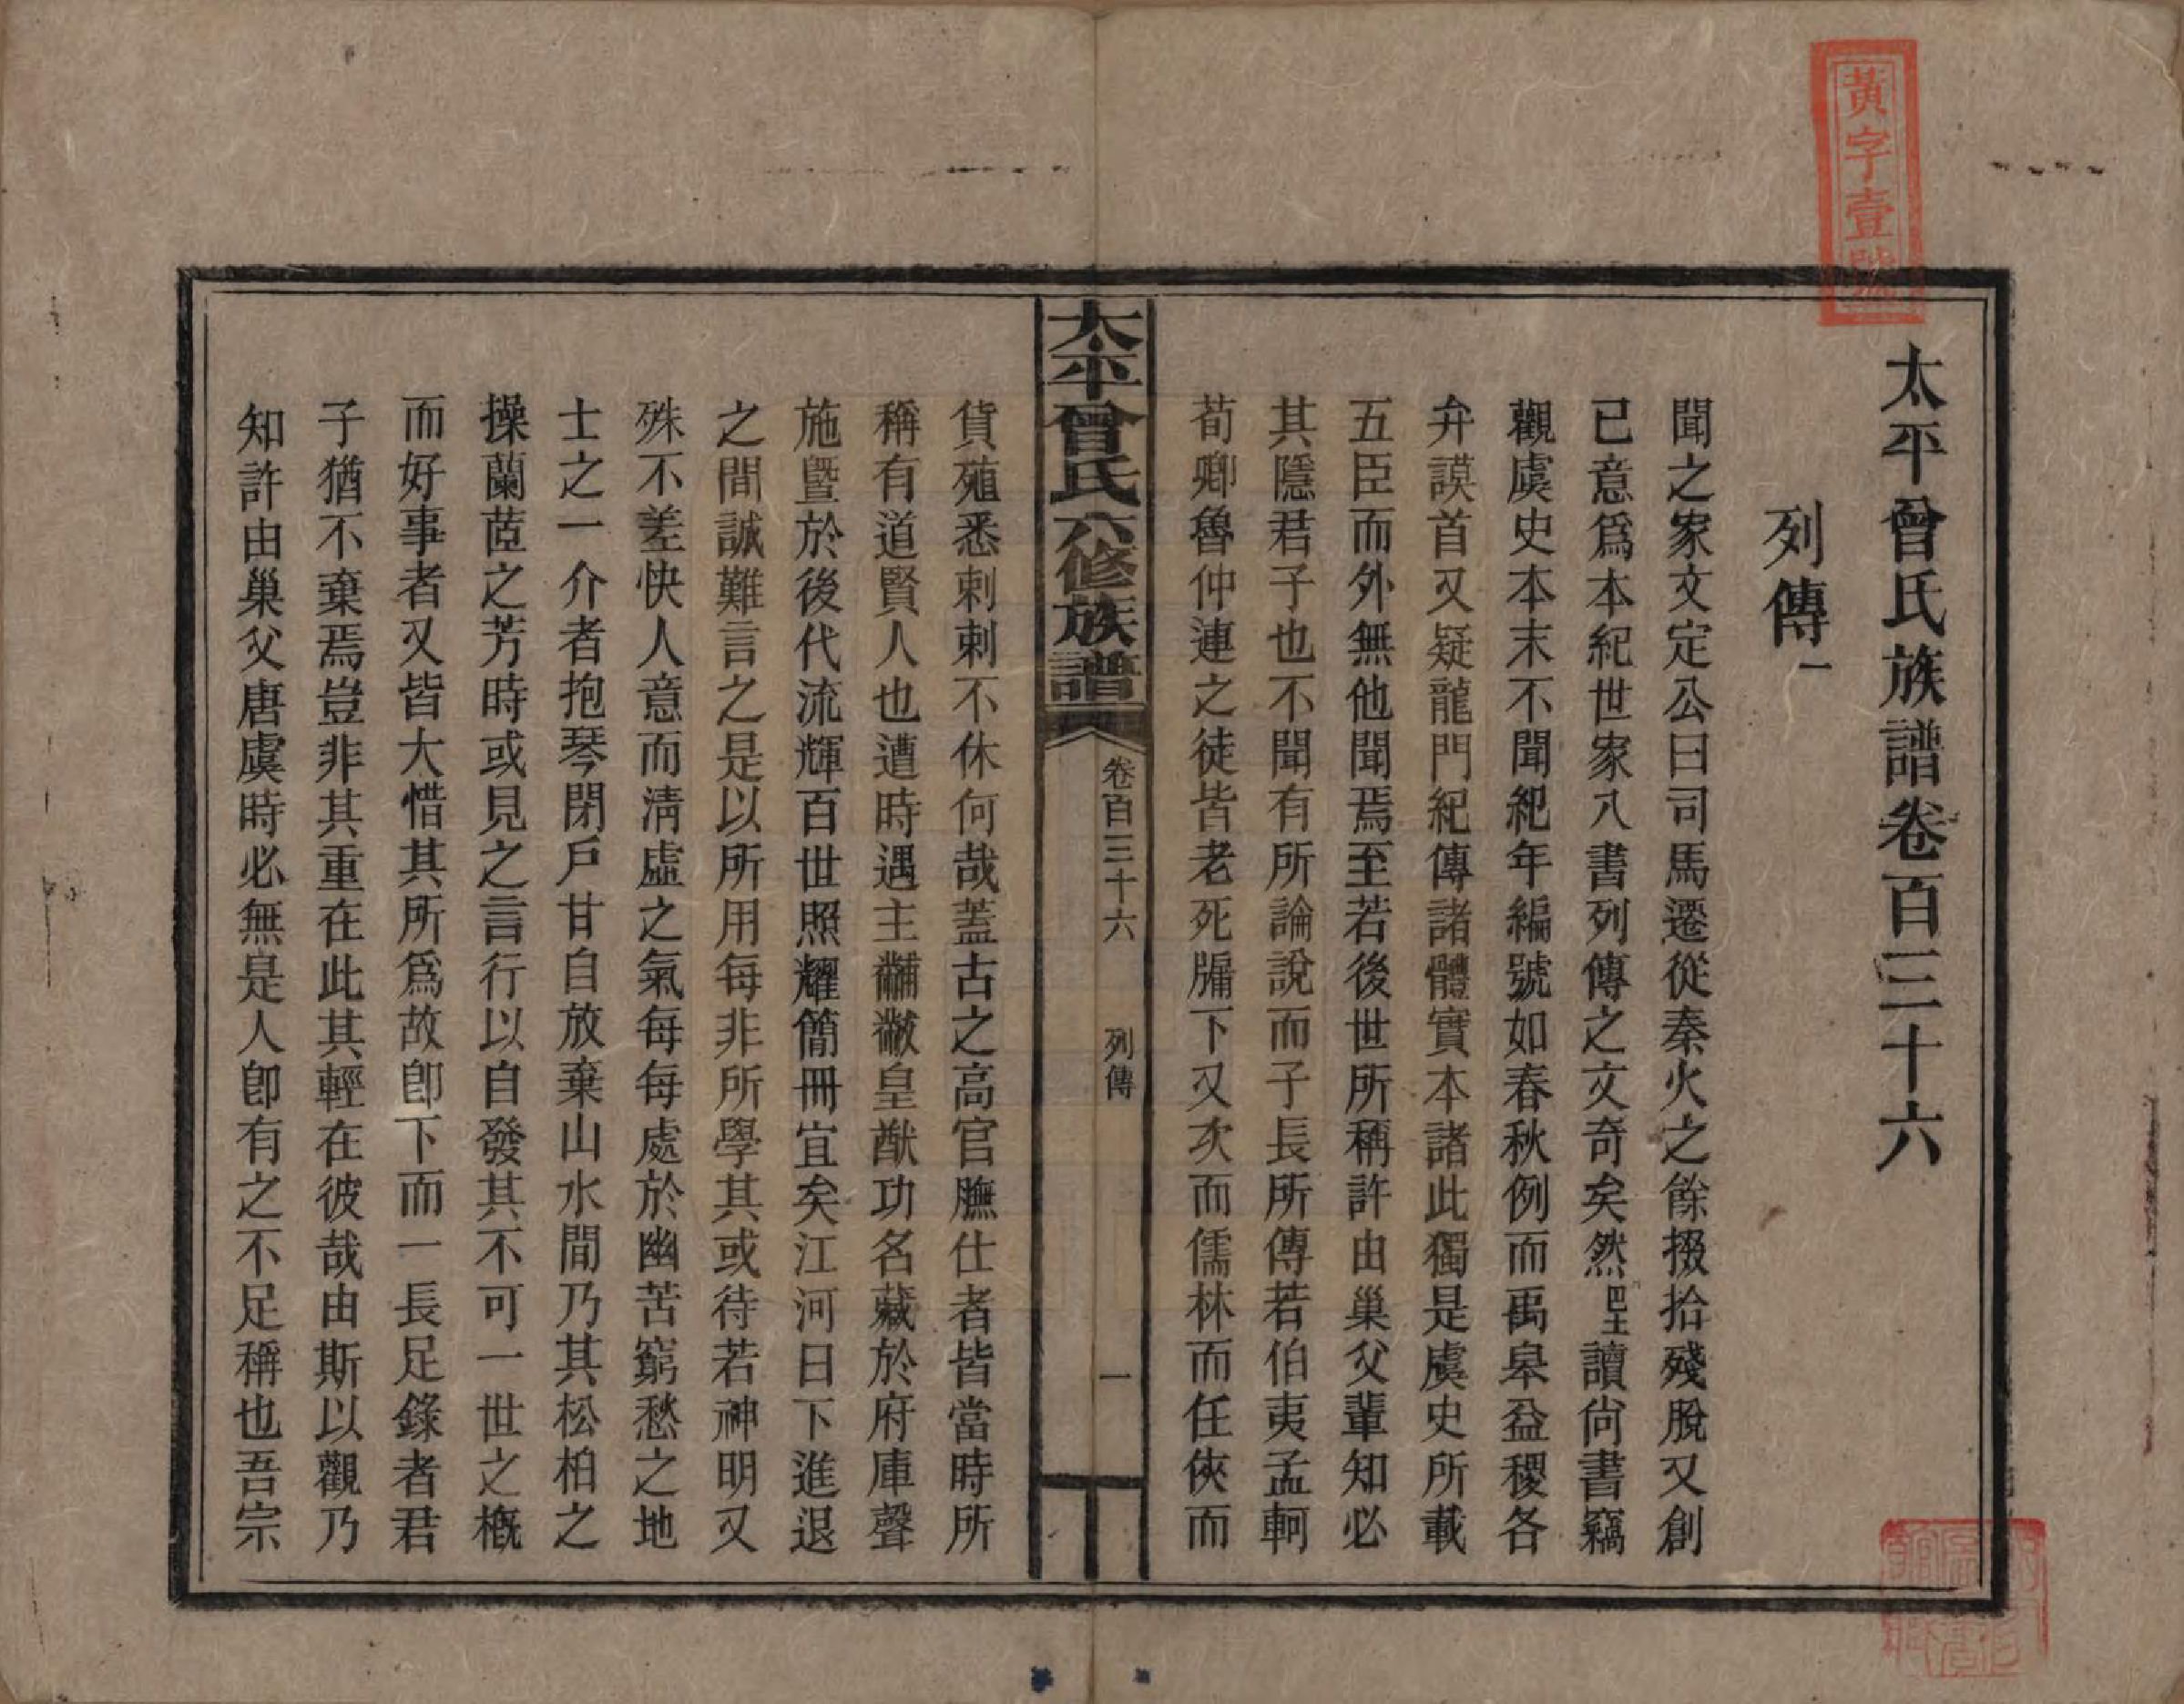 黃字壹號
太平曾氏族譜卷百三十六
列傳一
聞之家文定公曰司馬遷從秦火之餘掇拾殘脫又創
已意爲本紀世家八書列傳之文奇矣然巴士讀尙書竊
觀虞史本末不聞紀年編號如春秋例而禹皋益稷各
弁謨首又疑龍門紀傳諸體實本諸此獨是虞史所載
五臣而外無他聞焉至若後世所稱許由巢父輩知必
其隱君子也不聞有所論說而子長所傳若伯夷孟軻
荀卿魯仲連之徒皆老死牖下又次而儒林而任俠而
太平曾氏六修族譜 卷百三十六 列傳 一
貨殖悉剌剌不休何哉蓋古之高官膴仕者皆當時所
稱有道賢人也遭時遇主黼黻皇猷功名藏於府庫聲
施曁於後代流輝百世照耀簡冊宜矣江河日下進退
之間誠難言之是以所用每非所學其或待若神明又
殊不差快人意而淸虛之氣每每處於幽苦窮愁之地
士之一介者抱琴閉戶甘自放棄山水間乃其松柏之
操蘭茝之芳時或見之言行以自發其不可一世之槪
而好事者又皆大惜其所爲故卽下而一長足錄者君
子猶不棄焉豈非其重在此其輕在彼哉由斯以觀乃
知許由巢父唐虞時必無是人卽有之不足稱也吾宗